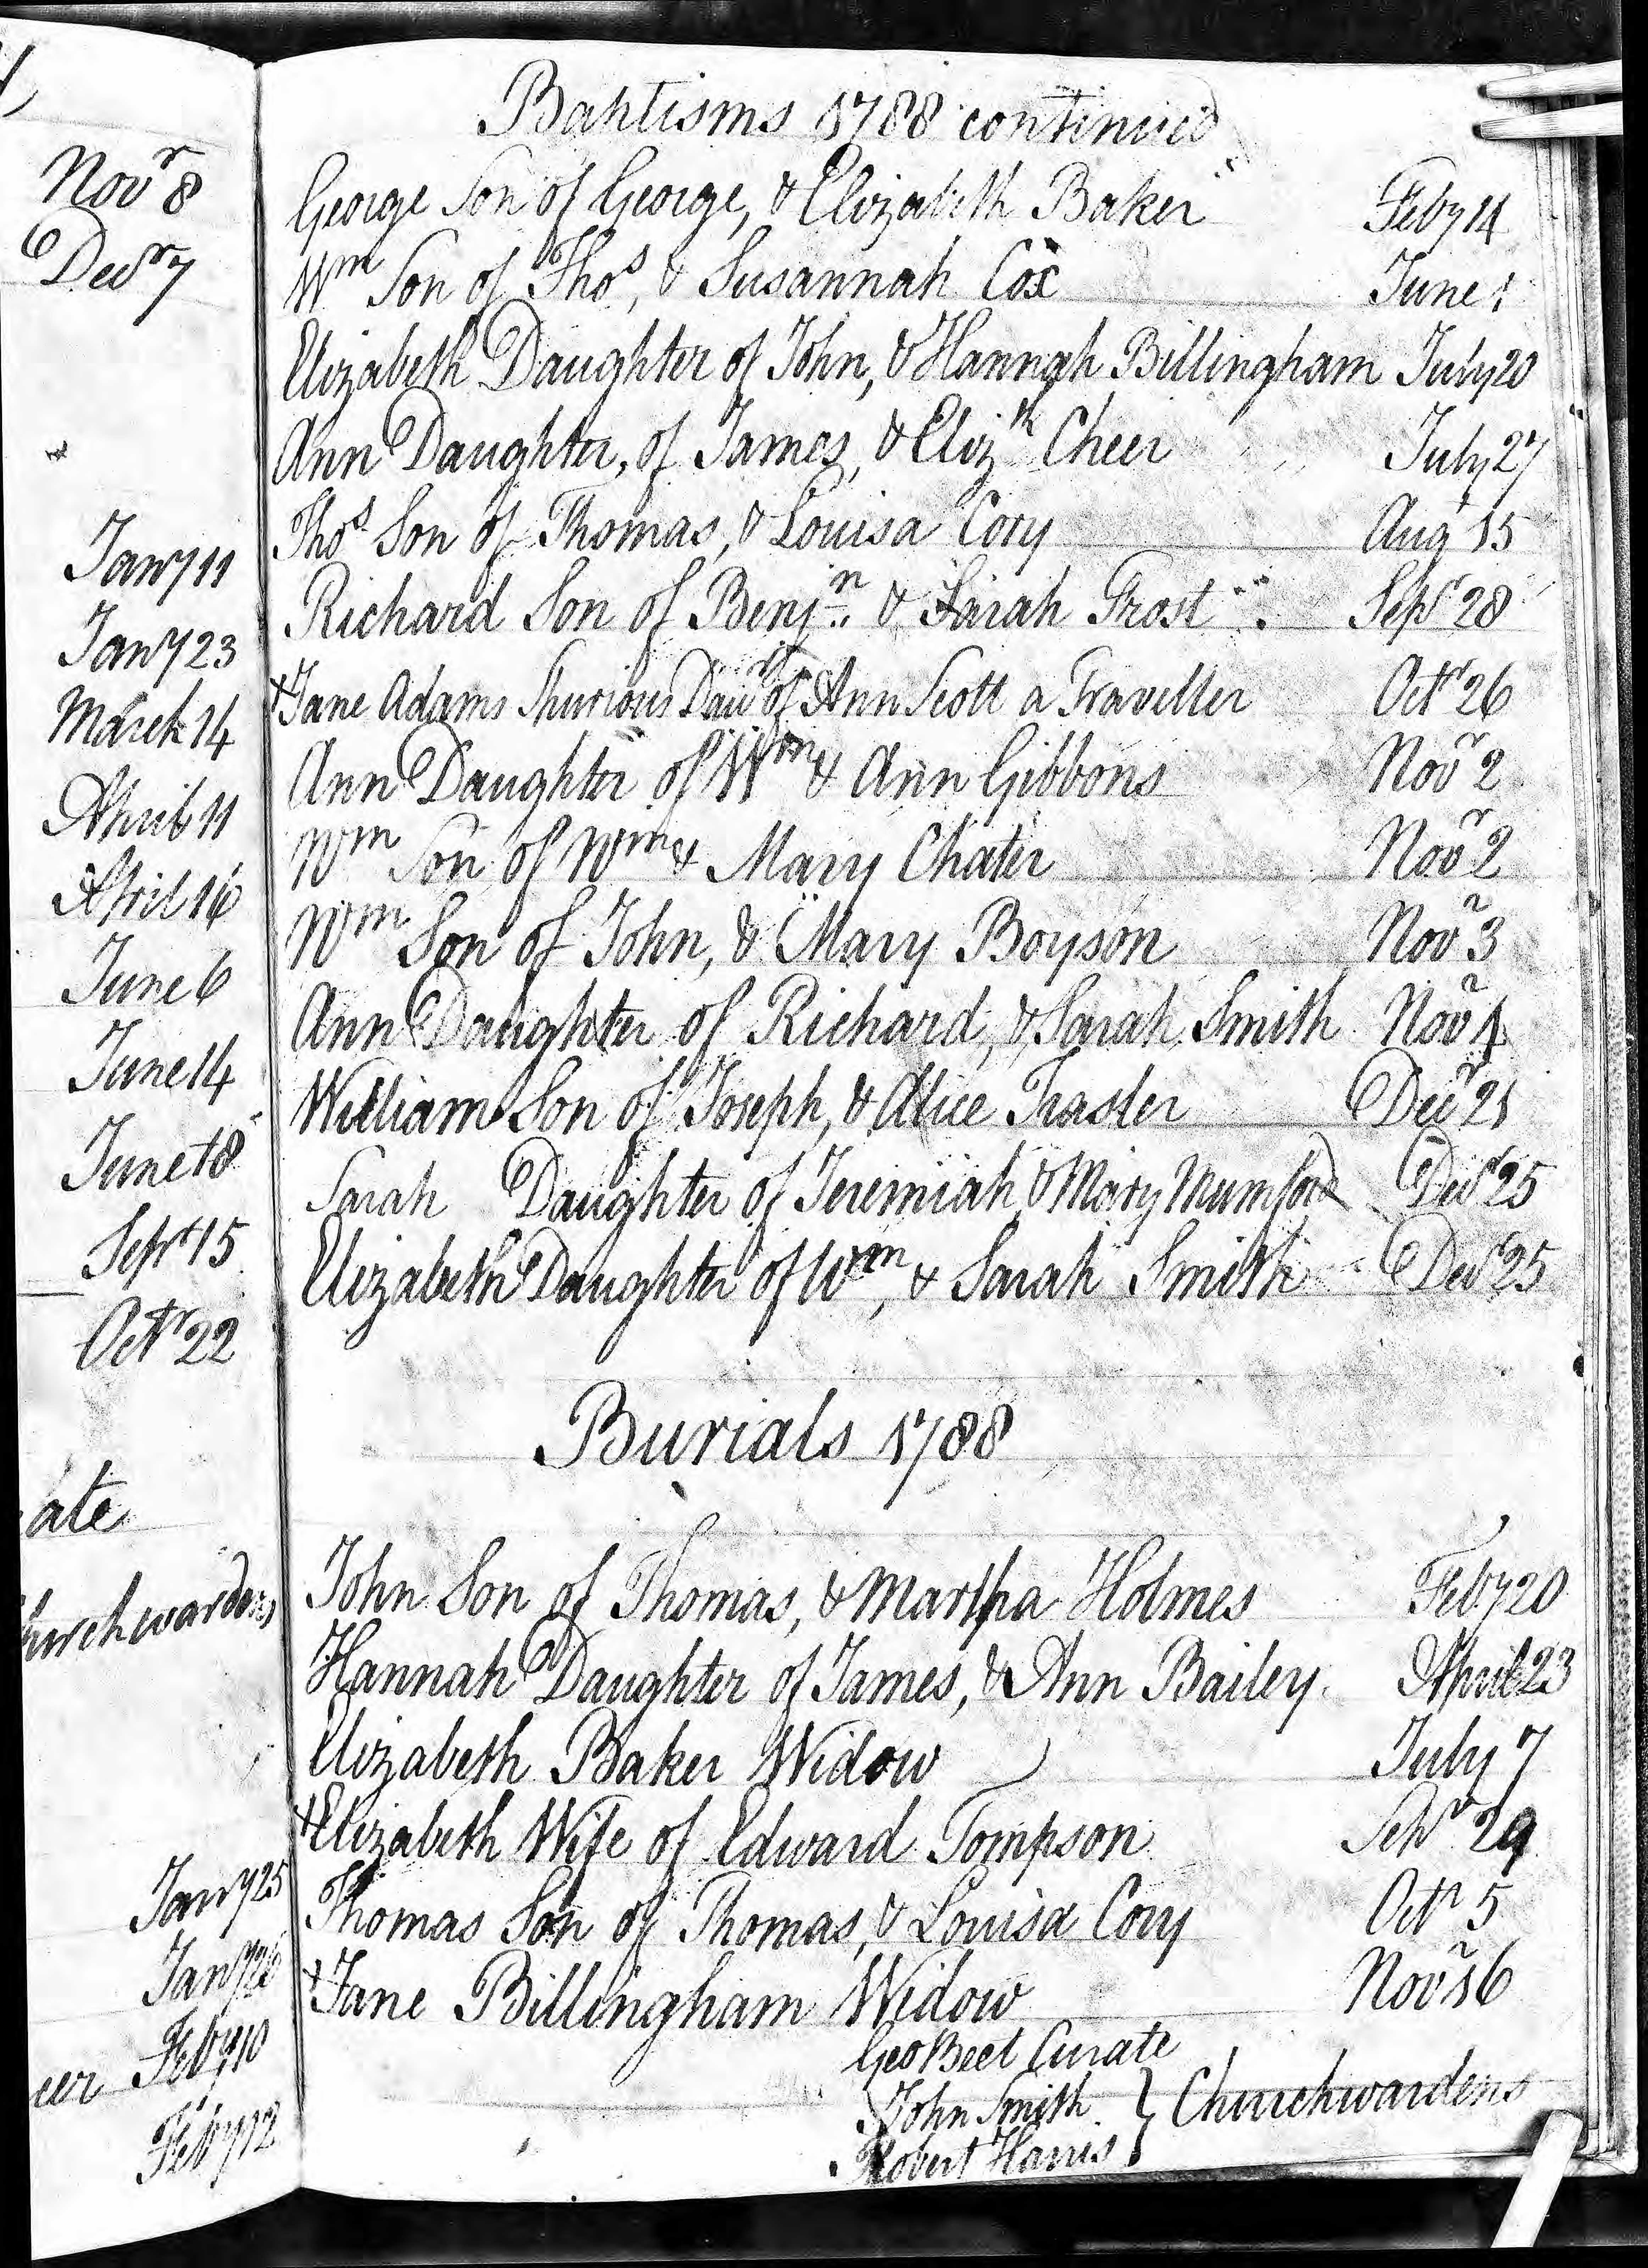 Novr 8
Decr 7
Jany 11
Jany 23
March 14
April 11
April 16
June 6
June 14
June 18
Sept 15
Octr 22
ate
hurchwardens
Jany 25
Jany 26
Feby 10
eer Feby 12
Baptisms 1788 continued
George Son of George, & Elizabeth Baker Feby 14
Wm Son of Thos, & Susannah Cox June 1
Elizabeth Daughter of John, & Hannah Billingham July 20
Ann Daughter, of James, & Elizth Cheer July 27
Thos Son of Thomas, & Louisa Cory Aug 15
Richard Son of Benjn & Sarah Frost Sepr 28
+Jane Adams Spurious Daur of Ann Scott a Traveller Octr 26
Ann Daughter of Wm & Ann Gibbons Novr 2
Wm Son of Wm & Mary Chater Novr 2
Wm Son of John, & Mary Boyson Novr 3
Ann Daughter of Richard, & Sarah Smith Novr 4
William Son of Joseph, & Alice Traster Decr 21
Sarah Daughter of Jeremiah & Mary Mumford Decr 25
Elizabeth Daughter of Wm, & Sarah Smith Decr 25
Burials 1788
John Son of Thomas, & Martha Holmes Feby 20
Hannah Daughter of James, & Ann Bailey April 23
Elizabeth Baker Widow July 7
+Elizabeth Wife of Edward Tompson Sepr 29
Thomas Son of Thomas, & Louisa Cory Octr 5
+Jane Billingham Widow Novr 16
Geo Beet Curate
John Smith } Churchwardens
Robert Harris